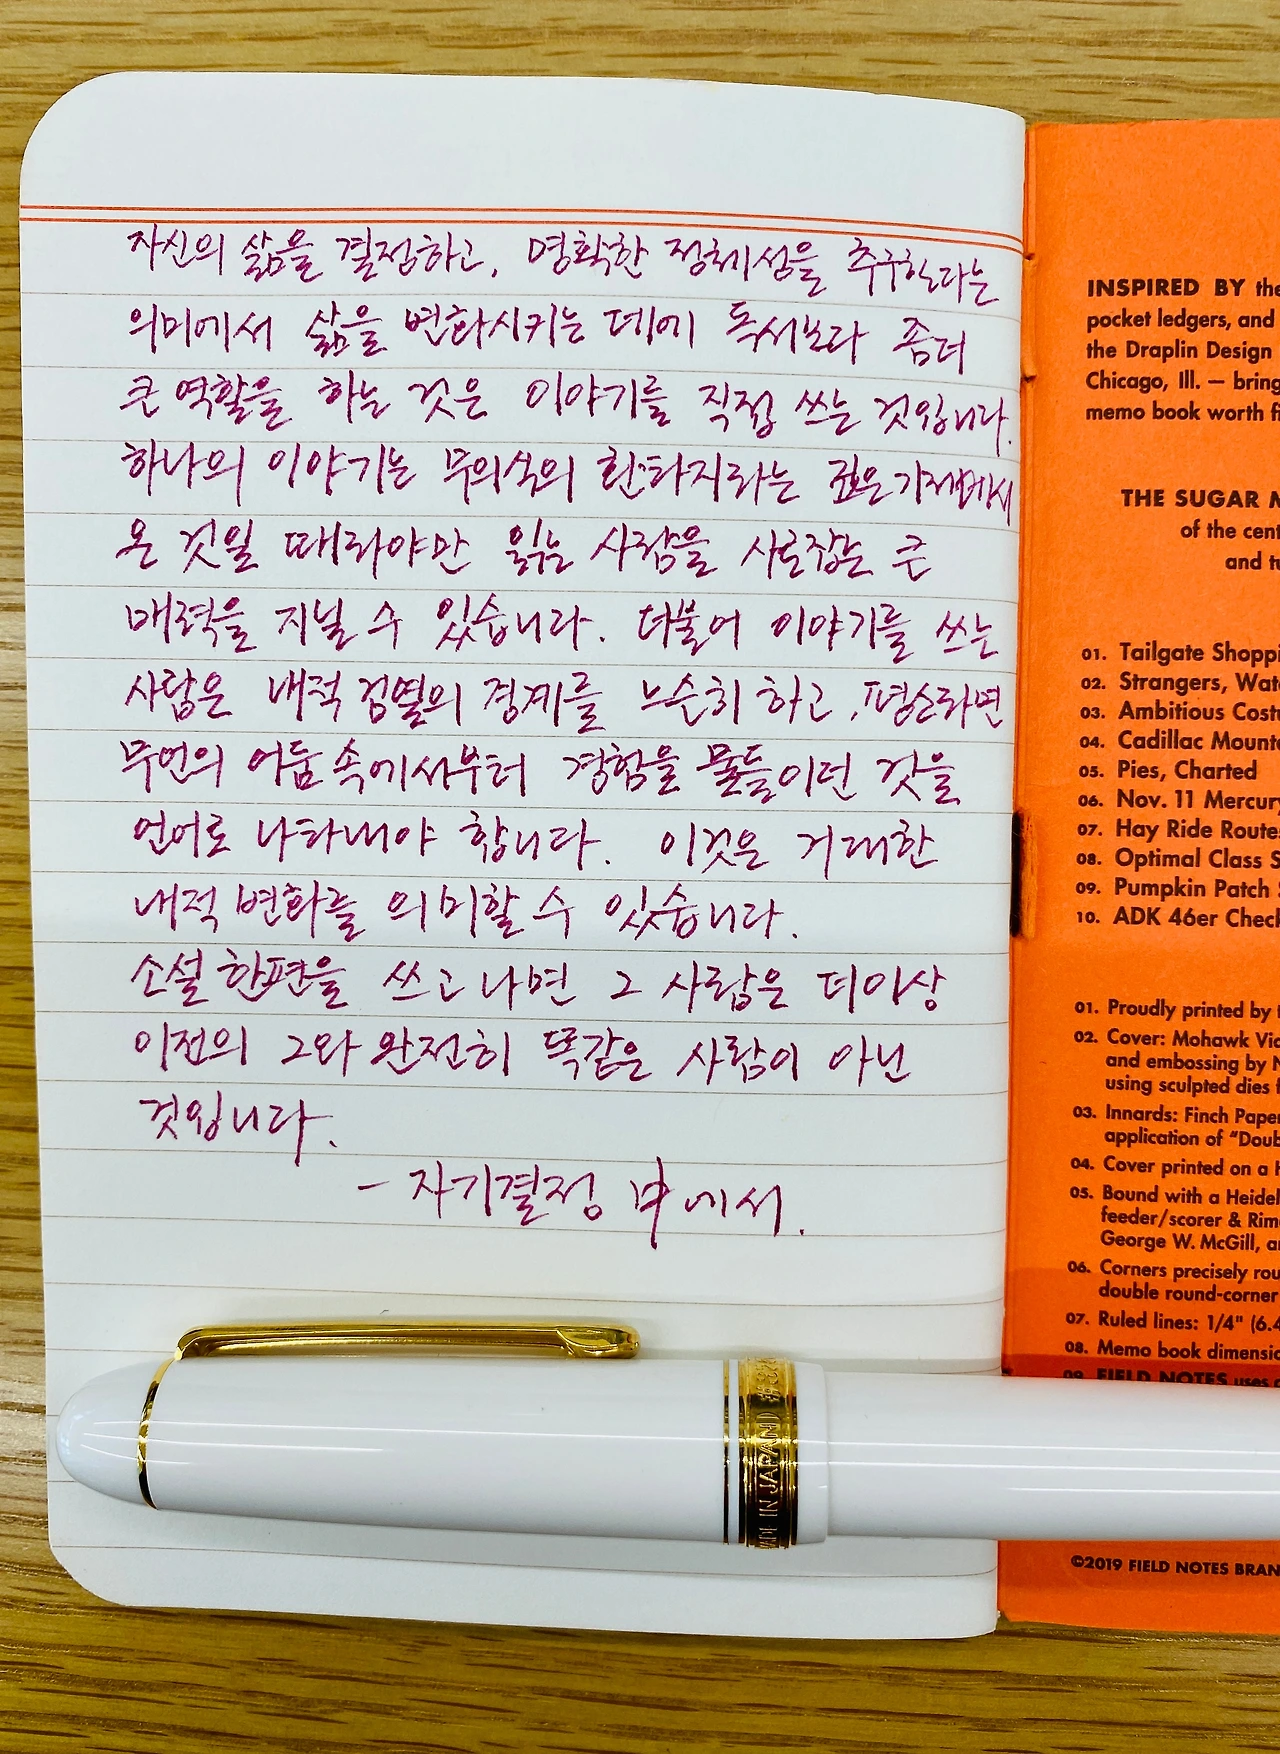 자신의 삶을 결정하고, 명확한 정체성을 추구한다는
의미에서 삶을 변화시키는 데에 독서보다 좀더
큰 역할을 하는 것은 이야기를 직접 쓰는 것입니다.
하나의 이야기는 무의식의 환타지라는 깊은 기저에서
온 것일 때라야만 읽는 사람을 사로잡는 큰
매력을 지닐 수 있습니다. 더불어 이야기를 쓰는
사람은 내적 검열의 경계를 느슨히 하고, 평소라면
무언의 어둠 속에서부터 경험을 물들이던 것을
언어로 나타내야 합니다. 이것은 거대한
내적 변화를 의미할 수 있습니다.
소설 한편을 쓰고 나면 그 사람은 더이상
이전의 그와 완전히 똑같은 사람이 아닌
것입니다.
- 자기결정 中에서.
INSPIRED BY the
pocket ledgers, and
the Draplin Design
Chicago, Ill. — bring
memo book worth
THE SUGAR
of the cent
and
01. Tailgate Shoppi
02. Strangers, Wat
03. Ambitious Cost
04. Cadillac Mount
05. Pies, Charted
06. Nov. 11 Mercury
07. Hay Ride Route
08. Optimal Class S
09. Pumpkin Patch
10. ADK 46er Check
01. Proudly printed by
02. Cover: Mohawk Vi
and embossing by
using sculpted dies
03. Innards: Finch Paper
application of "Doub
04. Cover printed on a
05. Bound with a Heidel
feeder/scorer & Rim
George W. McGill, a
06. Corners precisely rou
double round-corner
07. Ruled lines: 1/4" (6.4
08. Memo book dimensi
09. FIELD NOTES uses
©2019 FIELD NOTES BRAN
IN JAPAN